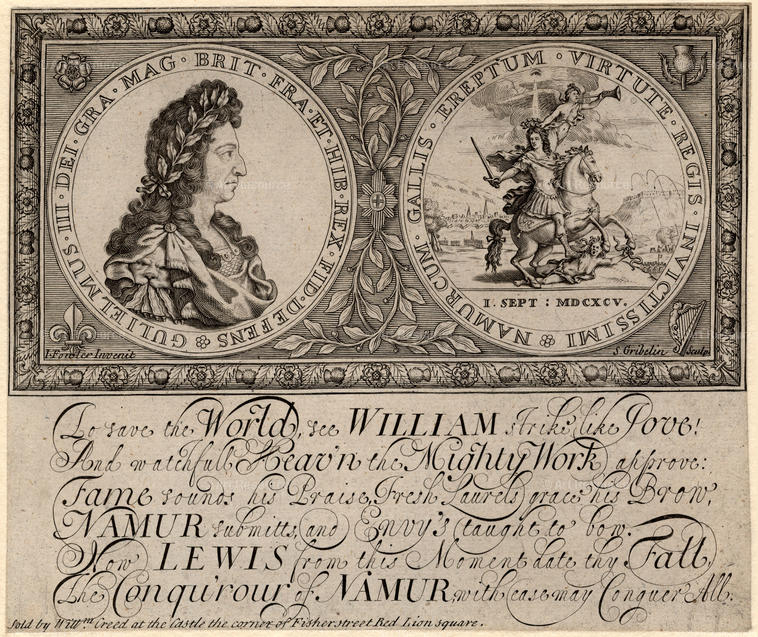 GULIELMUS · III · DEI · GRA · MAG · BRIT · FRA · ET · HIB · REX · FID · DEFENS
NAMURCUM · GALLIS · EREPTUM · VIRTUTE · REGIS · INVICTISSIMI
I. SEPT : MDCXCV.
I. Fowler Invenit
S. Gribelin sculp
To save the World, see WILLIAM strike like Jove!
And watchfull Heav'n the Mighty Work approve:
Fame sounds his Praise, Fresh Laurels grace his Brow,
NAMUR submitts, and Envy's taught to bow.
Now LEWIS from this Moment date thy Fall,
The Conqu'rour of NAMUR, with ease may Conquer All.
Sold by Will.m Creed at the Castle the corner of Fisher street Red Lion square.